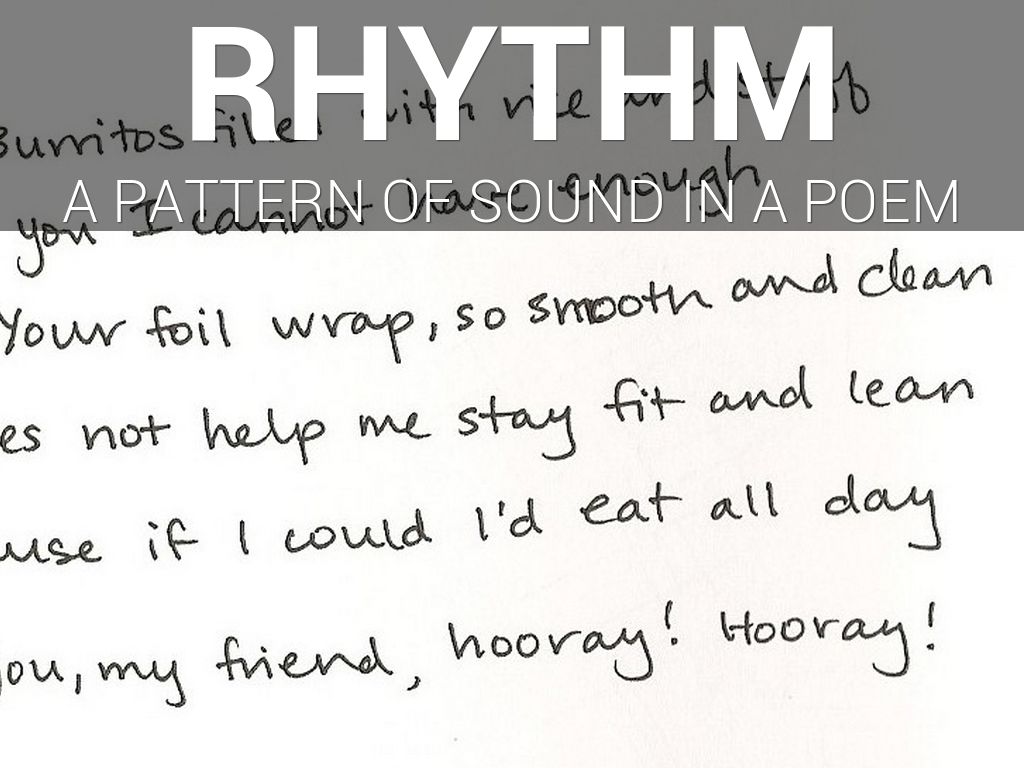 RHYTHM
A PATTERN OF SOUND IN A POEM
Burritos filled with rice and stuff
you I cannot have enough
Your foil wrap, so smooth and clean
es not help me stay fit and lean
use if I could I'd eat all day
you, my friend, hooray! Hooray!